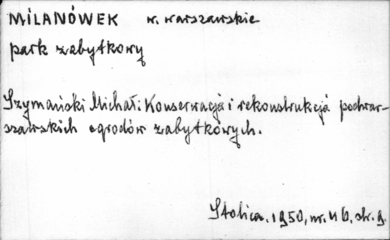 MILANÓWEK w. warszawskie
park zabytkowy
Szymański Michał: Konserwacja i rekonstrukcja podwar-
szawskich ogrodów zabytkowych.
Stolica. 1950, nr. 46, str. 9.